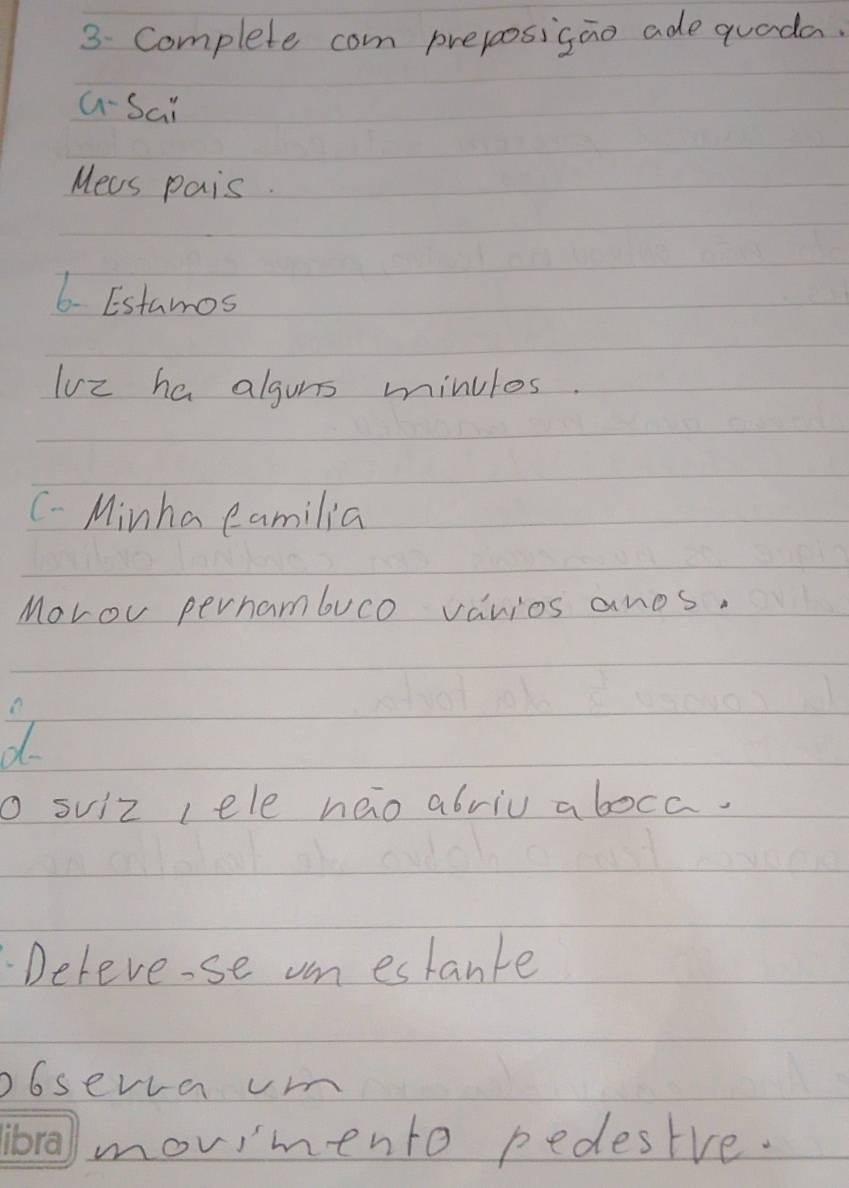 3- Complete com preposição adequada.
a- Sai
Meus pais.
b- Estamos
luz ha alguns minutos.
C- Minha familia
Morou pernambuco vários anos.
d-
o suiz, ele não abriu a boca.
Deteve-se um estante
observa um
libra movimento pedestre.